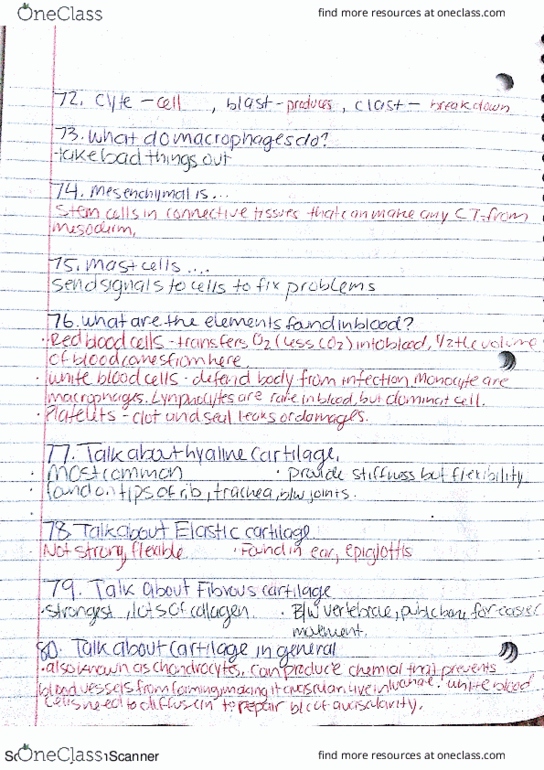 OneClass
find more resources at oneclass.com
72. Cyte - cell , blast - produces , clast - breakdown
73. What do macrophages do?
take bad things out
74. Mesenchymal is...
Stem cells in connective tissues that can make any CT from
mesoderm.
75. Mast cells ....
Send signals to cells to fix problems
76. What are the elements found in blood?
· Red blood cells - transfers O2 (less CO2) into blood, 1/2 the volume
of blood comes from here.
· White blood cells - defend body from infection. Monocyte are
macrophages. Lymphocytes are rare in blood, but dominat cell.
· Platelets - clot and seal leaks or damages.
77. Talk about hyaline cartilage.
· Most common · provide stiffness but flexibility
· found on tips of rib, trachea, b/w joints.
78. Talk about Elastic cartilage
Not strong, flexible · Found in ear, epiglottis
79. Talk about Fibrous cartilage
· strongest, lots of collagen. · B/w vertebrae, pubic bone, for easier
movement.
80. Talk about cartilage in general
· also known as chondrocytes, can produce chemial that prevents
blood vessels from forming, making it avascular. Live in . White blood
cells need to diffuse in to repair b/c of avascularity.
OneClass
Scanner
find more resources at oneclass.com